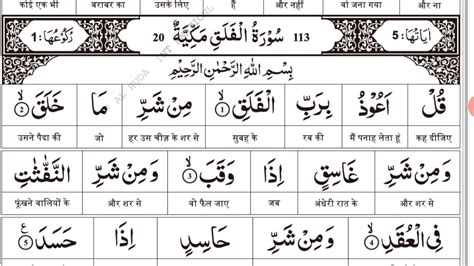 और ना वो जना गया और नहीं हैं उसके लिए बराबर का कोई एक भी
اٰيَاتُهَا: 5 113 سُوْرَةُ الْفَلَقِ مَكِّيَّةٌ 20 رُكُوْعُهَا: 1
بِسْمِ اللّٰهِ الرَّحْمٰنِ الرَّحِيْمِ
قُلْ اَعُوْذُ بِرَبِّ الْفَلَقِ ۙ﴿1﴾ مِنْ شَرِّ مَا خَلَقَ ۙ﴿2﴾
कह दीजिए मैं पनाह लेता हूं रब की सुबह के हर उस चीज़ के शर से जो उसने पैदा की
وَمِنْ شَرِّ غَاسِقٍ اِذَا وَقَبَ ۙ﴿3﴾ وَمِنْ شَرِّ النَّفّٰثٰتِ
और शर से अंधेरी रात के जब वो फैल जाए और शर से फूंखने वालियों के
فِى الْعُقَدِ ۙ﴿4﴾ وَمِنْ شَرِّ حَاسِدٍ اِذَا حَسَدَ ﴿5﴾ ع